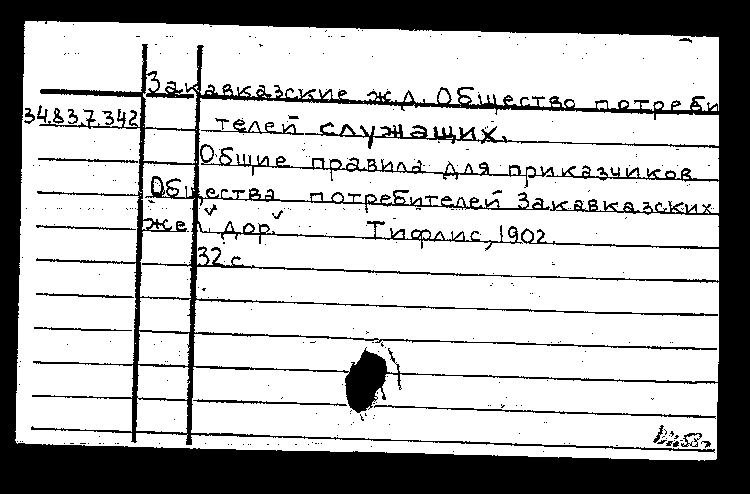 Закавказские ж.д. Общество потреби
34.83.7.342
телей служащих.
Общие правила для приказчиков
Общества потребителей Закавказских
жел. дор. Тифлис, 1902.
32 с.